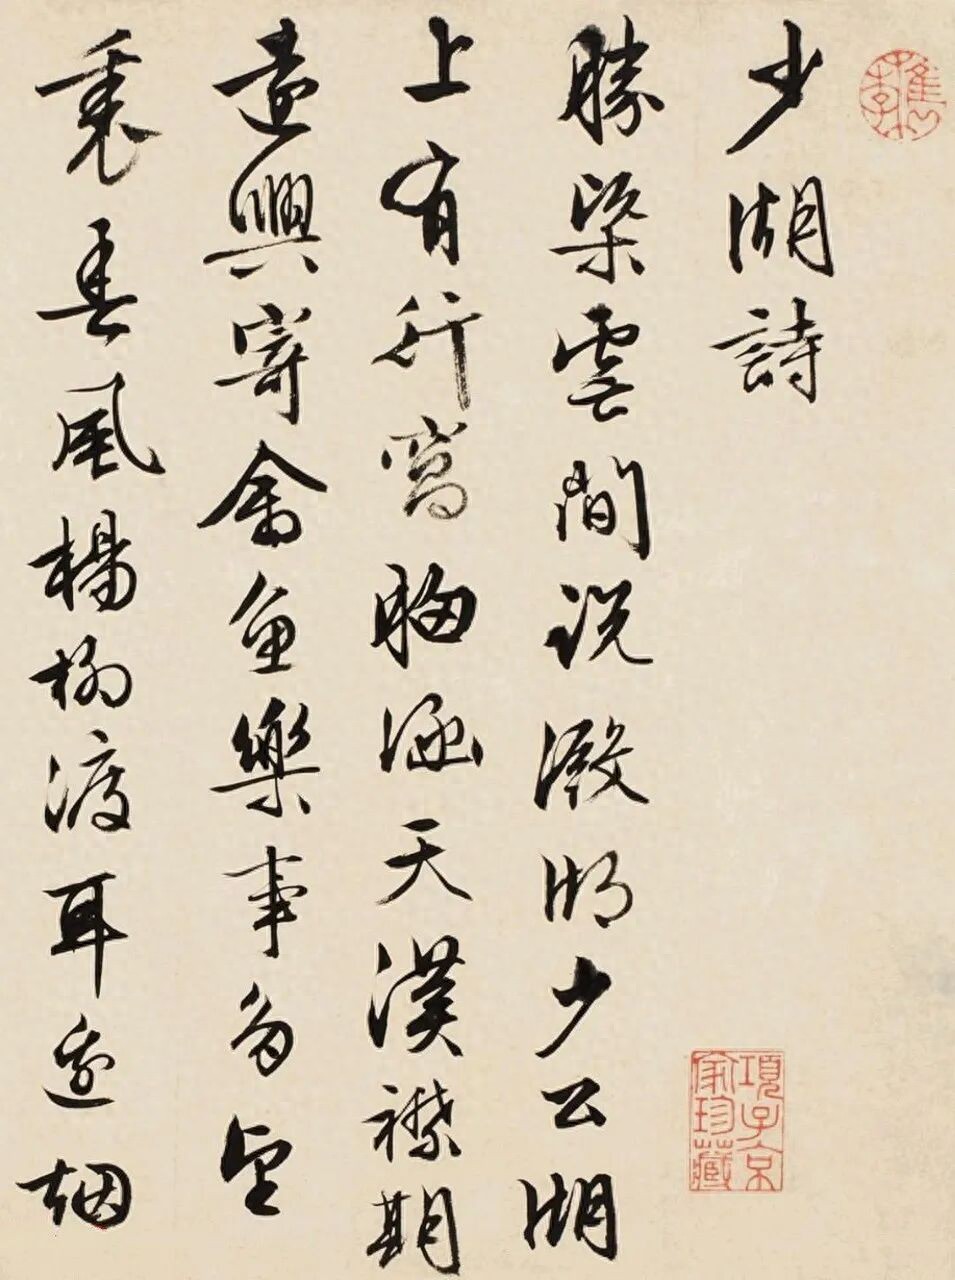 檇李
少湖詩
勝槩雲間説澱泖少公湖
上有行窩胸涵天漢襟期
遠興寄禽魚樂事多望
裏春風楊柳渡耳邊烟
項子京家珍藏